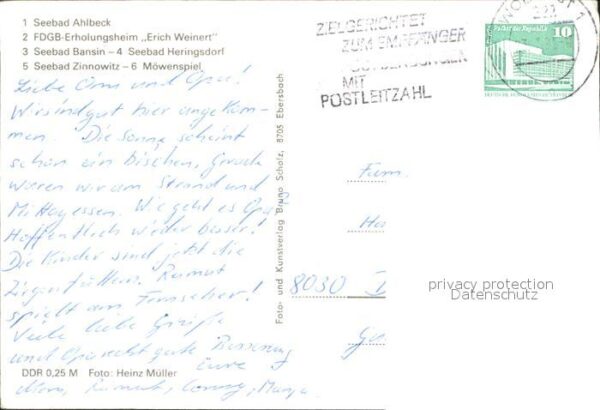 1 Seebad Ahlbeck
2 FDGB-Erholungsheim „Erich Weinert"
3 Seebad Bansin – 4 Seebad Heringsdorf
5 Seebad Zinnowitz – 6 Möwenspiel
Liebe Oma und Opa!
Wir sind gut hier angekom-
men. Die Sonne scheint
schon ein bischen, Gerade
waren wir am Strand und
Mittagessen. Wie geht es Opa?
Hoffentlich wieder besser!
Die Kinder sind jetzt die
Ziegen füttern. Reimut
spielt am Fernseher!
Viele liebe Grüße
und Opa recht gute Besserung
Eure
Reimut, Conny,
DDR 0,25 M Foto: Heinz Müller
Foto- und Kunstverlag Bruno Scholz, 8705 Ebersbach
ZIELGERICHTET
ZUM EMPFÄNGER
SENDUNGEN
MIT
POSTLEITZAHL
WOLGAST 1
Palast der Republik, Berlin
10
Fam.
8030
privacy protection
Datenschutz